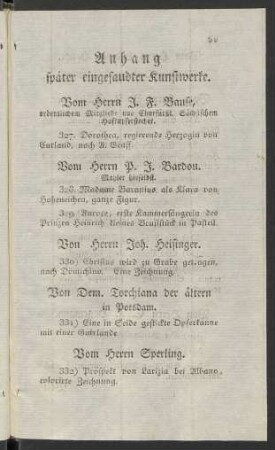 Anhang
später eingesandter Kunstwerke.
Vom Herrn J. F. Bause,
ordentlichem Mitgliede und Churfürstl. Sächsischem
Hofkupferstecher.
327. Dorothea, regierende Herzogin von
Curland, nach A. Graff.
Vom Herrn P. J. Bardou.
Mahler hieselbst.
328. Madame Baranius als Klara von
Hoheneichen, ganze Figur.
329. Aurore, erste Kammersängerin des
Prinzen Heinrich kleines Bruststück in Pastell.
Von Herrn Joh. Heisinger.
330) Christus wird zu Grabe getragen,
nach Domichino. Eine Zeichnung.
Von Dem. Torchiana der ältern
in Potsdam.
331) Eine in Seide gestickte Opferkanne
mit einer Guirlande
Vom Herrn Sperling.
332) Prospekt von Larizia bei Albano,
colorirte Zeichnung.